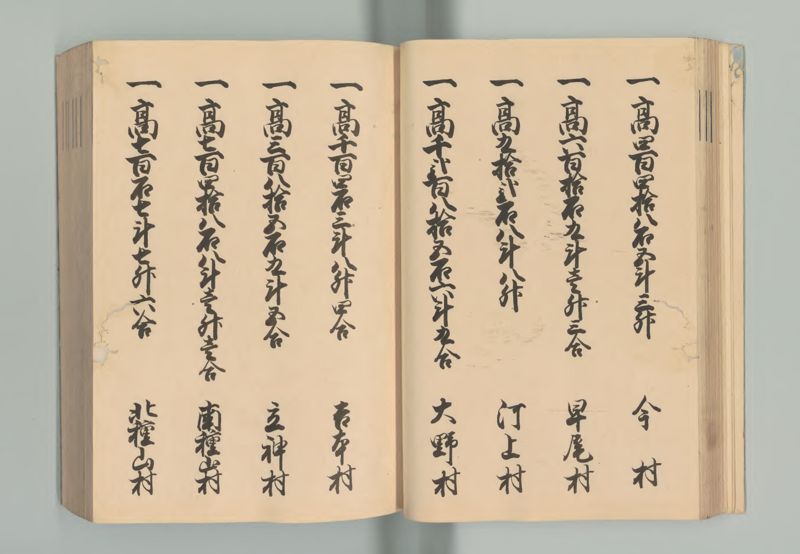 一高四百四拾八石五斗三升　今村
一高六百拾石九斗壱升三合　早尾村
一高九拾弐石八斗八升　河上村
一高千弐百八拾五石六斗九合　大野村
一高千百四石三斗八升四合　吉本村
一高三百八拾五石九斗五合　立神村
一高七百四拾八石八斗壱升壱合　南種山村
一高七百石七斗七升六合　北種山村